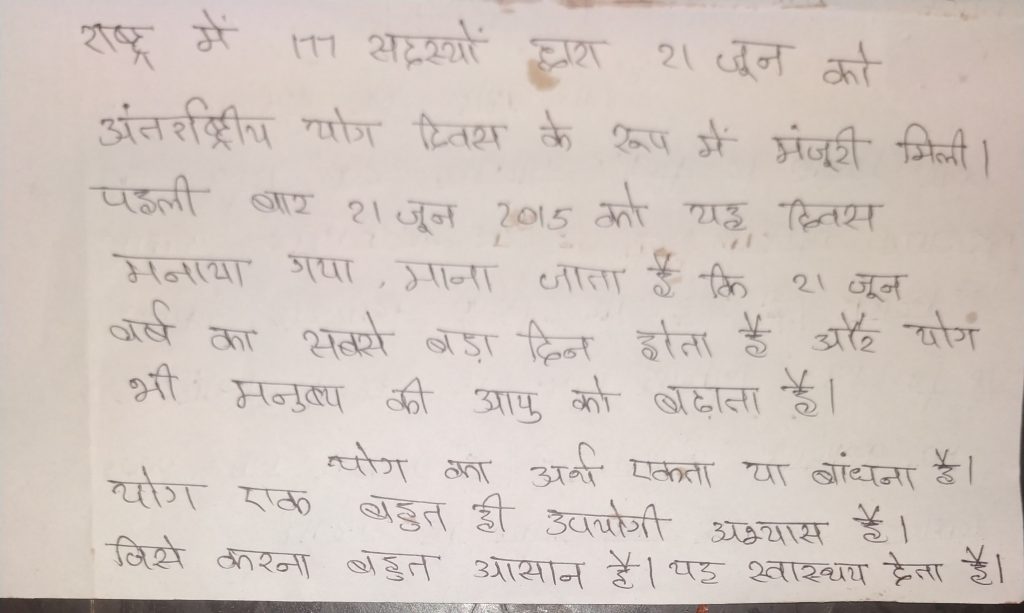 राष्ट्र में 177 सदस्यों द्वारा 21 जून को
अंतर्राष्ट्रीय योग दिवस के रूप में मंजूरी मिली।
पहली बार 21 जून 2015 को यह दिवस
मनाया गया, माना जाता है कि 21 जून
वर्ष का सबसे बड़ा दिन होता है और योग
भी मनुष्य की आयु को बढ़ाता है।
योग का अर्थ एकता या बांधना है।
योग एक बहुत ही उपयोगी अभ्यास है।
जिसे करना बहुत आसान है। यह स्वास्थय देता है।